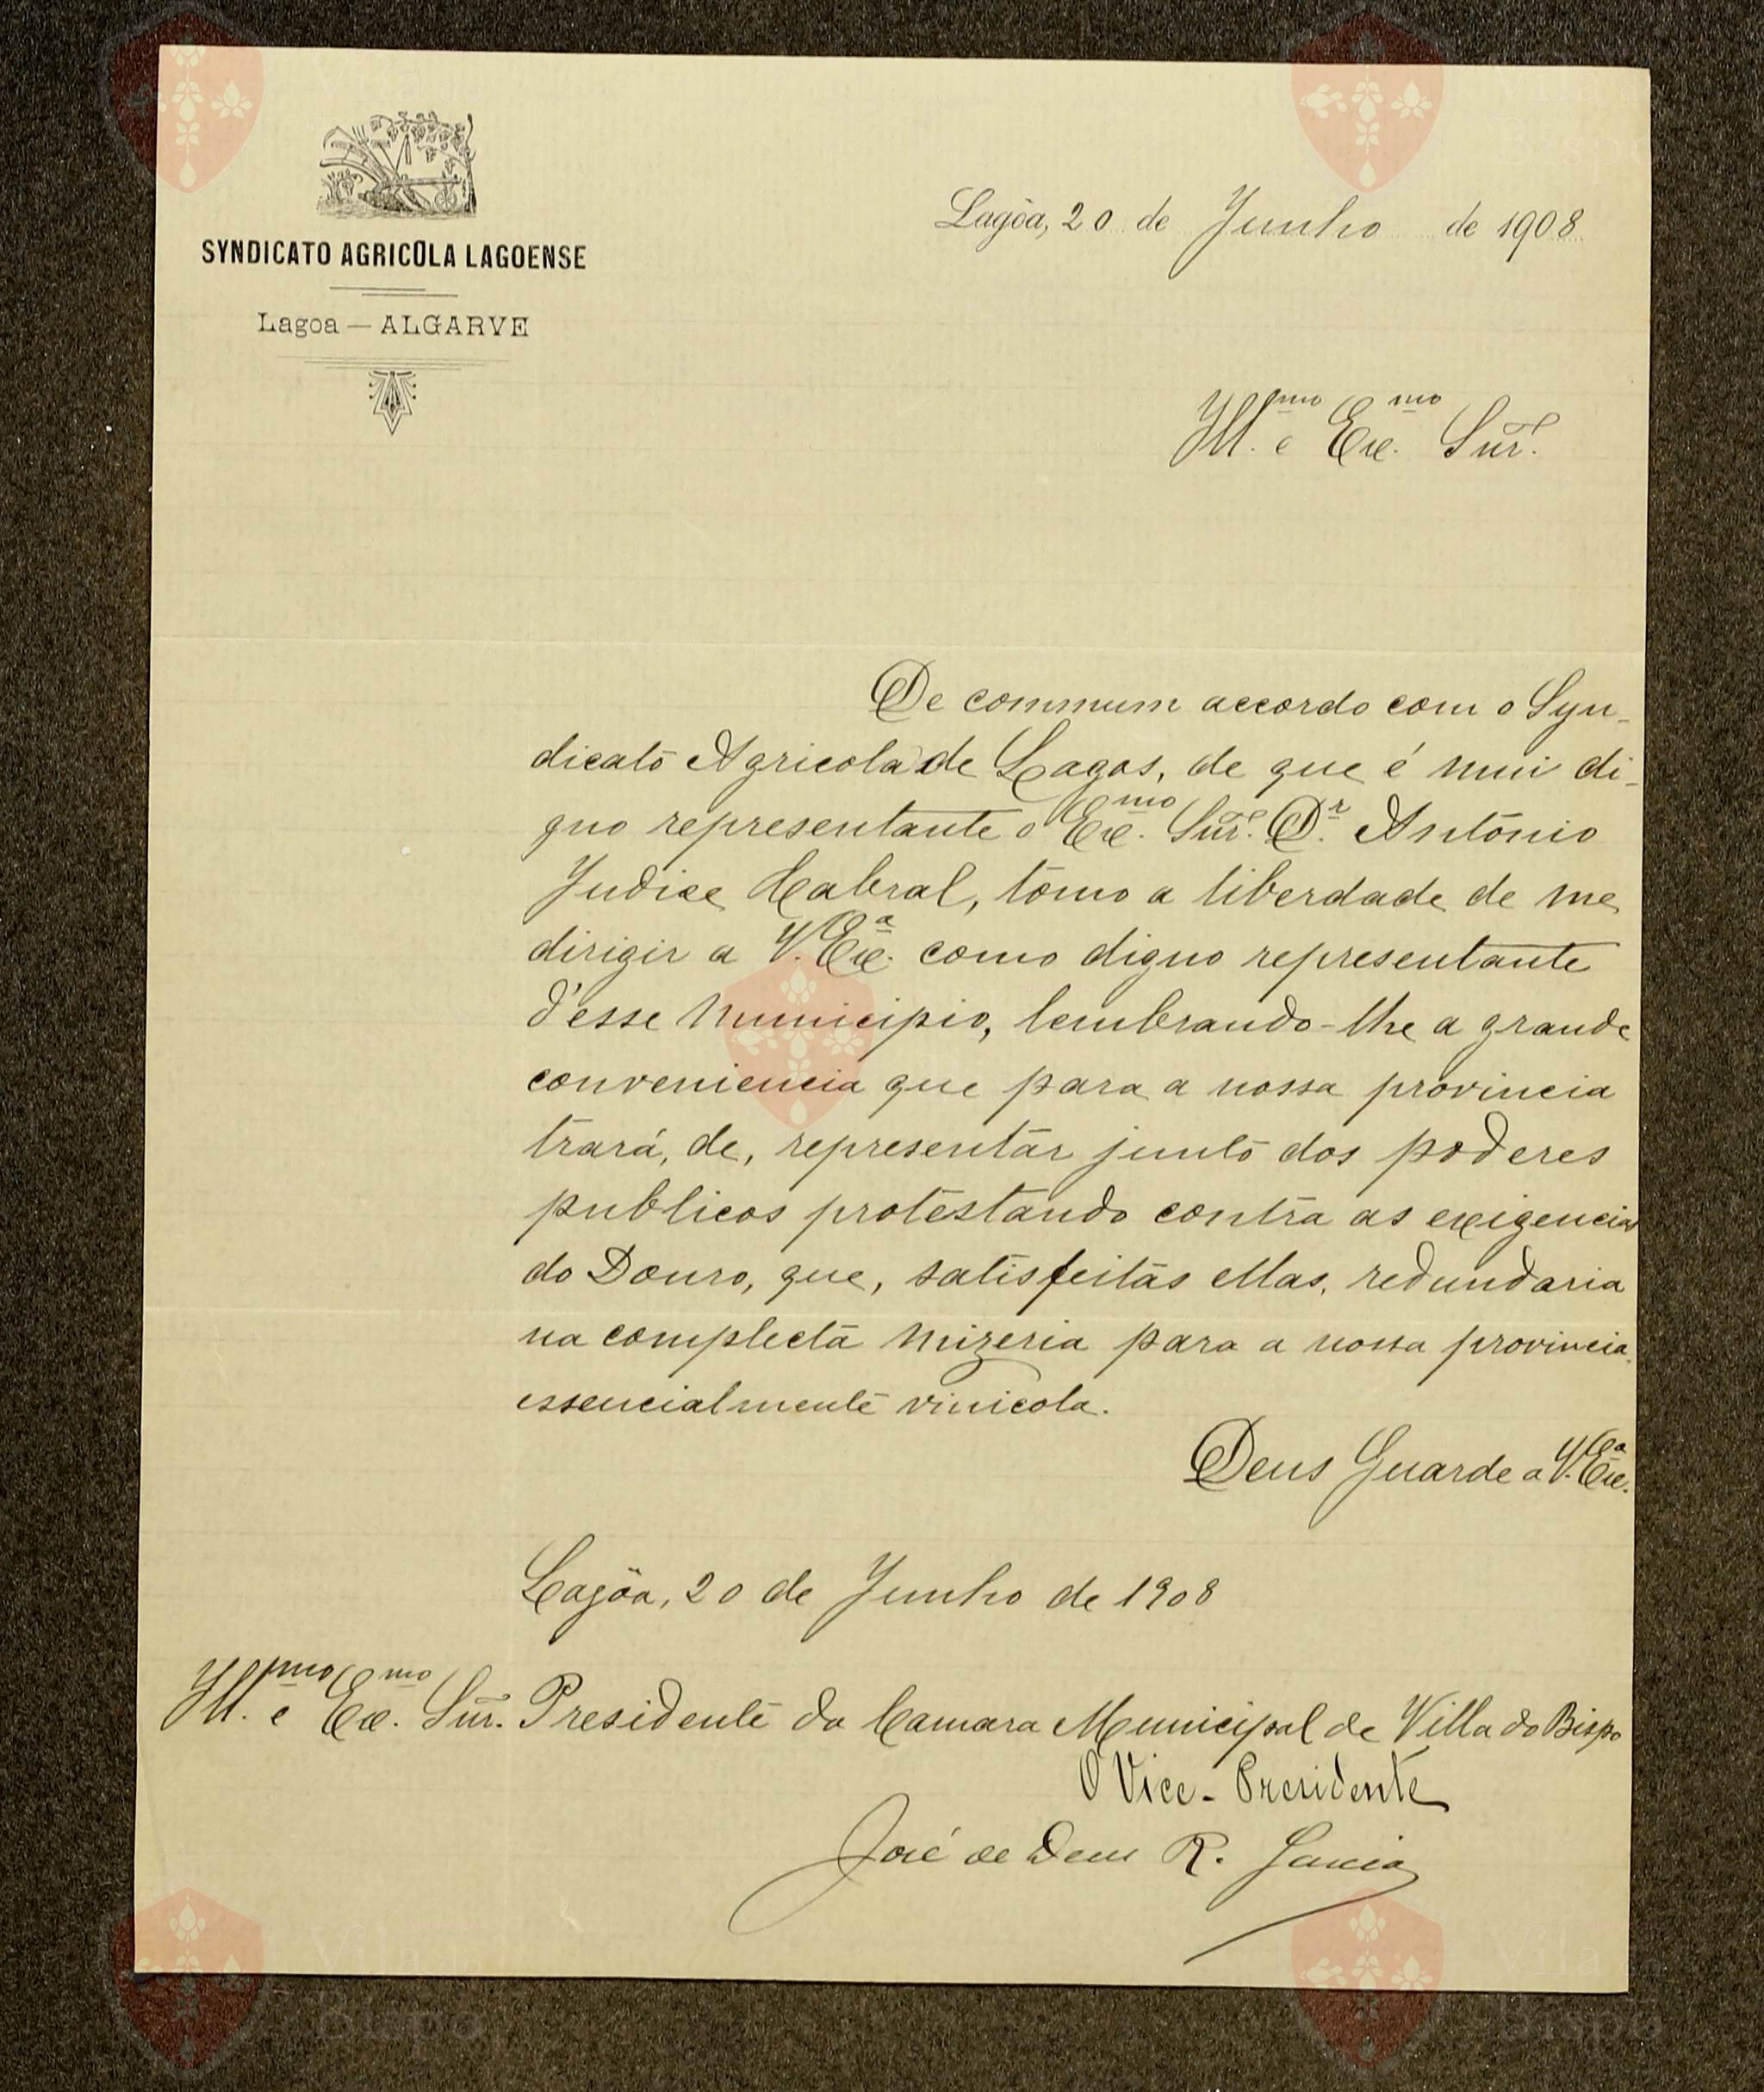 SYNDICATO AGRICOLA LAGOENSE
Lagoa — ALGARVE
Lagôa, 20 de Junho de 1908
Ill.mo e Exc.mo Snr.
De commum accordo com o Syn-
dicato Agricola de Lagos, de que é mui di-
gno representante o Exc.mo Snr. Dr. António
Judice Cabral, tomo a liberdade de me
dirigir a V. Exc.a como digno representante
d'esse Municipio, lembrando-lhe a grande
conveniencia que para a nossa provincia
trará, de, representar junto dos poderes
publicos protestando contra as exigencias
do Douro, que, satisfeitas ellas, redundaria
na completa mizeria para a nossa provincia
essencialmente vinicola.
Deus Guarde a V. Exc.a
Lagôa, 20 de Junho de 1908
Ill.mo e Exc.mo Snr. Presidente da Camara Municipal de Villa do Bispo
O Vice-Presidente
José de Deus R. Garcia
Vila
Bispo
Vila
Bispo